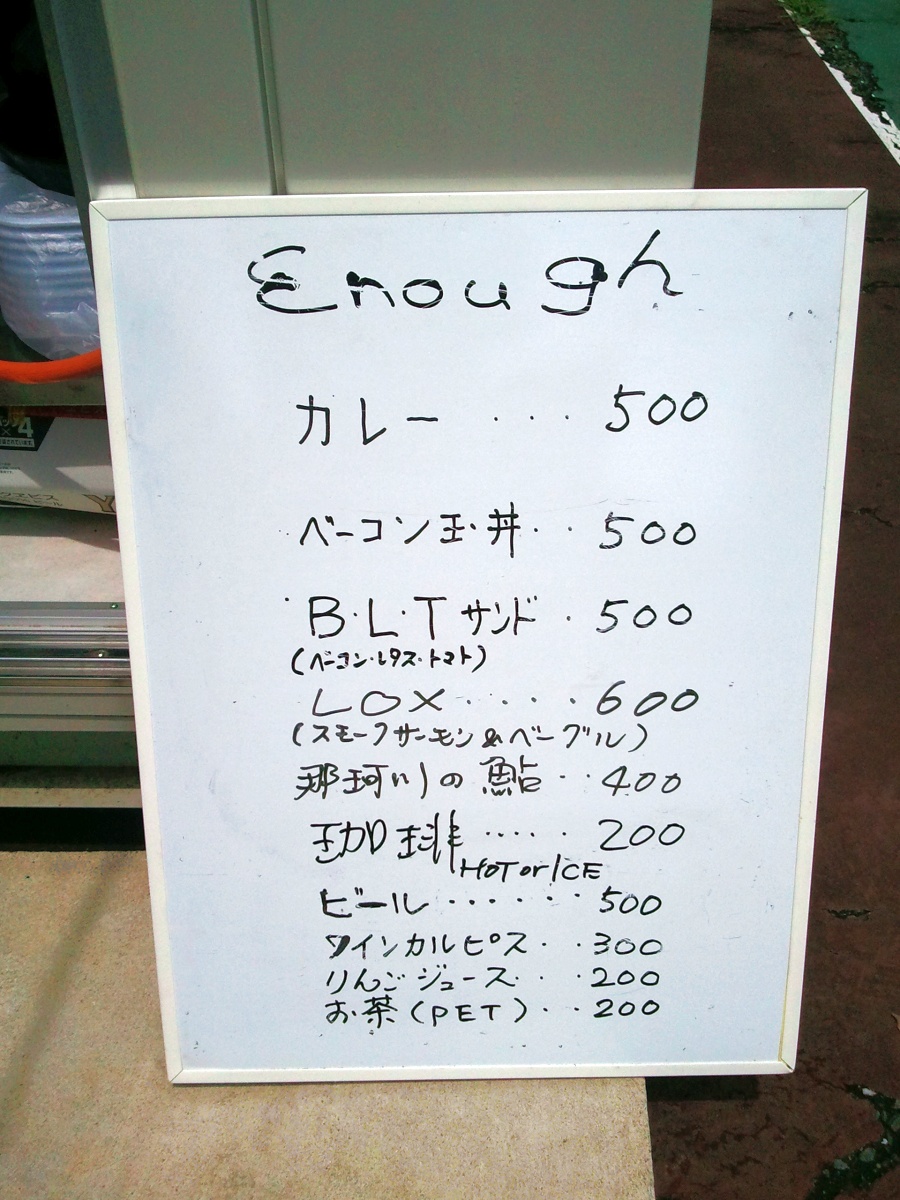 Enough
カレー ・・・ 500
ベーコン玉丼・・ 500
B・L・Tサンド・500
(ベーコン・レタス・トマト)
LOX・・・・・600
(スモークサーモン&ベーグル)
那珂川の鮎・・400
珈琲・・・・・200
HOT or ICE
ビール・・・・・・500
ワインカルピス・・・300
りんごジュース・・・200
お茶(PET)・・・200